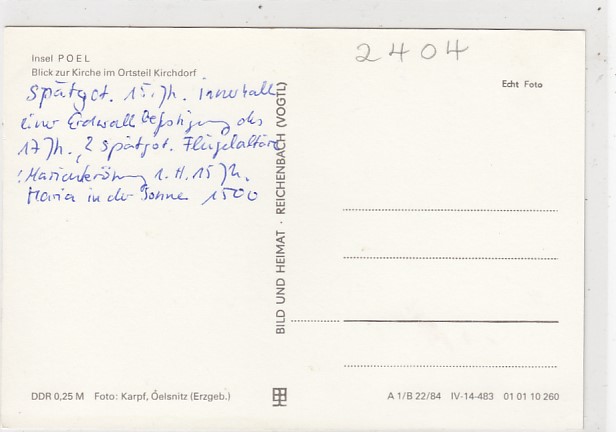 2404
Insel POEL
Blick zur Kirche im Ortsteil Kirchdorf
Echt Foto
Spätgot. 15. Jh. innerhalb
einer Erdwallbefestigung des
17 Jh., 2 spätgot. Flügelaltäre
! Marienkrönung 1. H. 15 Jh.
Maria in der Sonne 1500
BILD UND HEIMAT · REICHENBACH (VOGTL)
DDR 0,25 M Foto: Karpf, Oelsnitz (Erzgeb.)
A 1/B 22/84 IV-14-483 01 01 10 260